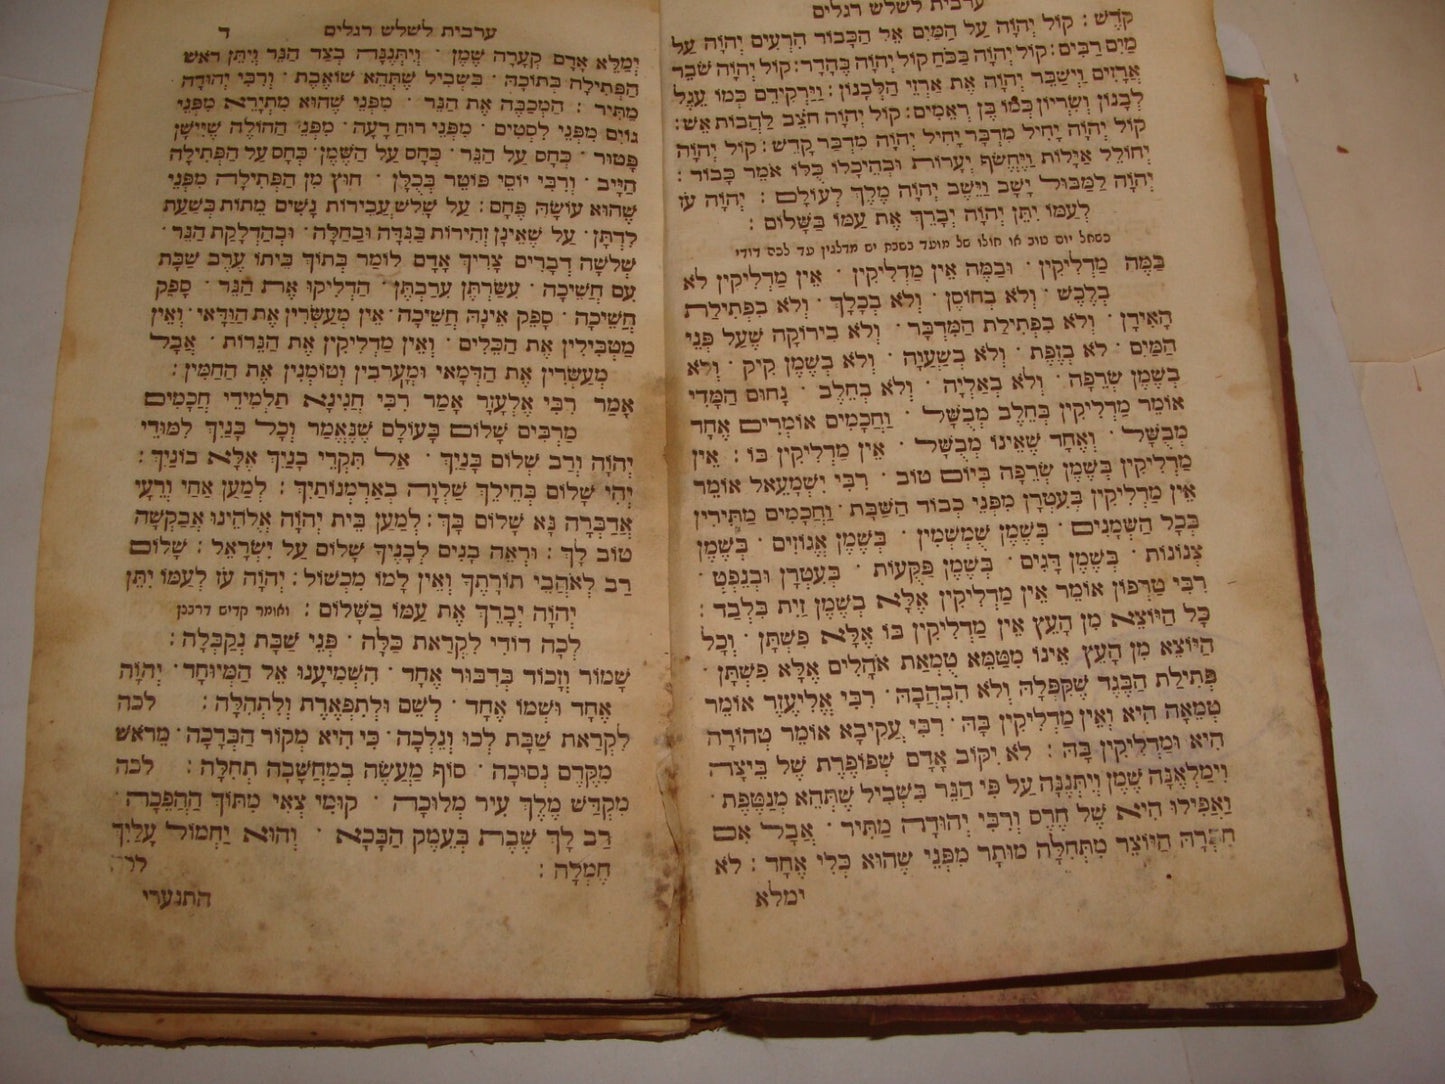 ערבית לשלש רגלים
קֹדֶשׁ׃ קוֹל יְהוָֹה עַל הַמַּיִם אֵל הַכָּבוֹד הִרְעִים יְהוָֹה עַל
מַיִם רַבִּים׃ קוֹל יְהוָֹה בַּכֹּחַ קוֹל יְהוָֹה בֶּהָדָר׃ קוֹל יְהוָֹה שֹׁבֵר
אֲרָזִים וַיְשַׁבֵּר יְהוָֹה אֶת אַרְזֵי הַלְּבָנוֹן׃ וַיַּרְקִידֵם כְּמוֹ עֵגֶל
לְבָנוֹן וְשִׂרְיוֹן כְּמוֹ בֶּן רְאֵמִים׃ קוֹל יְהוָֹה חֹצֵב לַהֲבוֹת אֵשׁ׃
קוֹל יְהוָֹה יָחִיל מִדְבָּר יָחִיל יְהוָֹה מִדְבַּר קָדֵשׁ׃ קוֹל יְהוָֹה
יְחוֹלֵל אַיָּלוֹת וַיֶּחֱשֹׂף יְעָרוֹת וּבְהֵיכָלוֹ כֻּלּוֹ אֹמֵר כָּבוֹד׃
יְהוָֹה לַמַּבּוּל יָשָׁב וַיֵּשֶׁב יְהוָֹה מֶלֶךְ לְעוֹלָם׃ יְהוָֹה עֹז
לְעַמּוֹ יִתֵּן יְהוָֹה יְבָרֵךְ אֶת עַמּוֹ בַשָּׁלוֹם׃
כשחל יום טוב או חולו של מועד בשבת יש מדלגין עד לכה דודי
בַּמֶּה מַדְלִיקִין וּבַמֶּה אֵין מַדְלִיקִין· אֵין מַדְלִיקִין לֹא
בְלֶכֶשׁ· וְלֹא בְחוֹסֶן· וְלֹא בְכָלָךְ· וְלֹא בִפְתִילַת
הָאִידָן· וְלֹא בִפְתִילַת הַמִּדְבָּר· וְלֹא בִירוֹקָה שֶׁעַל פְּנֵי
הַמַּיִם· לֹא בְזֶפֶת· וְלֹא בְשַׁעֲוָה· וְלֹא בְשֶׁמֶן קִיק· וְלֹא
בְשֶׁמֶן שְׂרֵפָה· וְלֹא בְאַלְיָה· וְלֹא בְחֵלֶב· נָחוּם הַמָּדִי
אוֹמֵר מַדְלִיקִין בְּחֵלֶב מְבֻשָּׁל· וַחֲכָמִים אוֹמְרִים אֶחָד
מְבֻשָּׁל· וְאֶחָד שֶׁאֵינוֹ מְבֻשָּׁל· אֵין מַדְלִיקִין בּוֹ׃ אֵין
מַדְלִיקִין בְּשֶׁמֶן שְׂרֵפָה בְּיוֹם טוֹב· רִבִּי יִשְׁמָעֵאל אוֹמֵר
אֵין מַדְלִיקִין בְּעִטְרָן מִפְּנֵי כְבוֹד הַשַּׁבָּת· וַחֲכָמִים מַתִּירִין
בְּכָל הַשְּׁמָנִים· בְּשֶׁמֶן שֻׁמְשְׁמִין· בְּשֶׁמֶן אֱגוֹזִים· בְּשֶׁמֶן
צְנוֹנוֹת· בְּשֶׁמֶן דָּגִים· בְּשֶׁמֶן פַּקֻּעוֹת· בְּעִטְרָן וּבְנֵפְטְ·
רִבִּי טַרְפוֹן אוֹמֵר אֵין מַדְלִיקִין אֶלָּא בְּשֶׁמֶן זַיִת בִּלְבַד׃
כָּל הַיּוֹצֵא מִן הָעֵץ אֵין מַדְלִיקִין בּוֹ אֶלָּא פִּשְׁתָּן· וְכָל
הַיּוֹצֵא מִן הָעֵץ אֵינוֹ מִטַּמֵּא טֻמְאַת אֹהָלִים אֶלָּא פִּשְׁתָּן·
פְּתִילַת הַבֶּגֶד שֶׁקִּפְּלָהּ וְלֹא הִבְהֲבָהּ· רִבִּי אֱלִיעֶזֶר אוֹמֵר
טְמֵאָה הִיא וְאֵין מַדְלִיקִין בָּהּ· רִבִּי עֲקִיבָא אוֹמֵר טְהוֹרָה
הִיא וּמַדְלִיקִין בָּהּ׃ לֹא יִקּוֹב אָדָם שְׁפוֹפֶרֶת שֶׁל בֵּיצָה
וִימַלְאֶנָּה שֶׁמֶן וְיִתְּנֶנָּה עַל פִּי הַנֵּר בִּשְׁבִיל שֶׁתְּהֵא מְנַטֶּפֶת·
וַאֲפִילוּ הִיא שֶׁל חֶרֶס וְרִבִּי יְהוּדָה מַתִּיר· אֲבָל אִם
חִבְּרָהּ הַיּוֹצֵר מִתְּחִלָּה מוּתָּר מִפְּנֵי שֶׁהוּא כְּלִי אֶחָד׃ לֹא
ימלא
ערבית לשלש רגלים ד
יְמַלֵּא אָדָם קְעָרָה שֶׁמֶן· וְיִתְּנֶנָּה בְּצַד הַנֵּר וְיִתֵּן רֹאשׁ
הַפְּתִילָה בְּתוֹכָהּ· בִּשְׁבִיל שֶׁתְּהֵא שׁוֹאֶבֶת· וְרִבִּי יְהוּדָה
מַתִּיר׃ הַמְכַבֶּה אֶת הַנֵּר· מִפְּנֵי שֶׁהוּא מִתְיָרֵא מִפְּנֵי
גוֹיִם מִפְּנֵי לִסְטִים· מִפְּנֵי רוּחַ רָעָה· מִפְּנֵי הַחוֹלֶה שֶׁיִּישָׁן
פָּטוּר· כְּחָס עַל הַנֵּר· כְּחָס עַל הַשֶּׁמֶן· כְּחָס עַל הַפְּתִילָה
חַיָּיב· וְרִבִּי יוֹסֵי פּוֹטֵר בְּכֻלָּן· חוּץ מִן הַפְּתִילָה מִפְּנֵי
שֶׁהוּא עוֹשָׂהּ פֶּחָם׃ עַל שָׁלֹשׁ עֲבֵירוֹת נָשִׁים מֵתוֹת בִּשְׁעַת
לֵדָתָן· עַל שֶׁאֵינָן זְהִירוֹת בַּנִּדָּה וּבַחַלָּה· וּבְהַדְלָקַת הַנֵּר·
שְׁלֹשָׁה דְבָרִים צָרִיךְ אָדָם לוֹמַר בְּתוֹךְ בֵּיתוֹ עֶרֶב שַׁבָּת
עִם חֲשֵׁיכָה· עִשַּׂרְתֶּן עֵרַבְתֶּן· הַדְלִיקוּ אֶת הַנֵּר· סָפֵק
חֲשֵׁיכָה· סָפֵק אֵינָהּ חֲשֵׁיכָה· אֵין מְעַשְּׂרִין אֶת הַוַּדָּאי· וְאֵין
מַטְבִּילִין אֶת הַכֵּלִים· וְאֵין מַדְלִיקִין אֶת הַנֵּרוֹת· אֲבָל
מְעַשְּׂרִין אֶת הַדְּמַאי וּמְעָרְבִין וְטוֹמְנִין אֶת הַחַמִּין׃
אָמַר רִבִּי אֶלְעָזָר אָמַר רִבִּי חֲנִינָא תַּלְמִידֵי חֲכָמִים
מַרְבִּים שָׁלוֹם בָּעוֹלָם שֶׁנֶּאֱמַר וְכָל בָּנַיִךְ לִמּוּדֵי
יְהוָֹה וְרַב שְׁלוֹם בָּנָיִךְ· אַל תִּקְרֵי בָנַיִךְ אֶלָּא בוֹנַיִךְ׃
יְהִי שָׁלוֹם בְּחֵילֵךְ שַׁלְוָה בְּאַרְמְנוֹתָיִךְ׃ לְמַעַן אַחַי וְרֵעָי
אֲדַבְּרָה נָּא שָׁלוֹם בָּךְ׃ לְמַעַן בֵּית יְהוָֹה אֱלֹהֵינוּ אֲבַקְשָׁה
טוֹב לָךְ׃ וּרְאֵה בָנִים לְבָנֶיךָ שָׁלוֹם עַל יִשְׂרָאֵל׃ שָׁלוֹם
רַב לְאֹהֲבֵי תוֹרָתֶךָ וְאֵין לָמוֹ מִכְשׁוֹל׃ יְהוָֹה עֹז לְעַמּוֹ יִתֵּן
יְהוָֹה יְבָרֵךְ אֶת עַמּוֹ בַשָּׁלוֹם׃ ואומר קדיש דרבנן
לְכָה דוֹדִי לִקְרַאת כַּלָּה· פְּנֵי שַׁבָּת נְקַבְּלָה׃
שָׁמוֹר וְזָכוֹר בְּדִבּוּר אֶחָד· הִשְׁמִיעָנוּ אֵל הַמְּיוּחָד· יְהוָֹה
אֶחָד וּשְׁמוֹ אֶחָד· לְשֵׁם וּלְתִפְאֶרֶת וְלִתְהִלָּה׃ לכה
לִקְרַאת שַׁבָּת לְכוּ וְנֵלְכָה· כִּי הִיא מְקוֹר הַבְּרָכָה· מֵרֹאשׁ
מִקֶּדֶם נְסוּכָה· סוֹף מַעֲשֶׂה בְּמַחֲשָׁבָה תְחִלָּה׃ לכה
מִקְדַּשׁ מֶלֶךְ עִיר מְלוּכָה· קוּמִי צְאִי מִתּוֹךְ הַהֲפֵכָה·
רַב לָךְ שֶׁבֶת בְּעֵמֶק הַבָּכָא· וְהוּא יַחֲמוֹל עָלַיִךְ
חֶמְלָה׃
התנערי